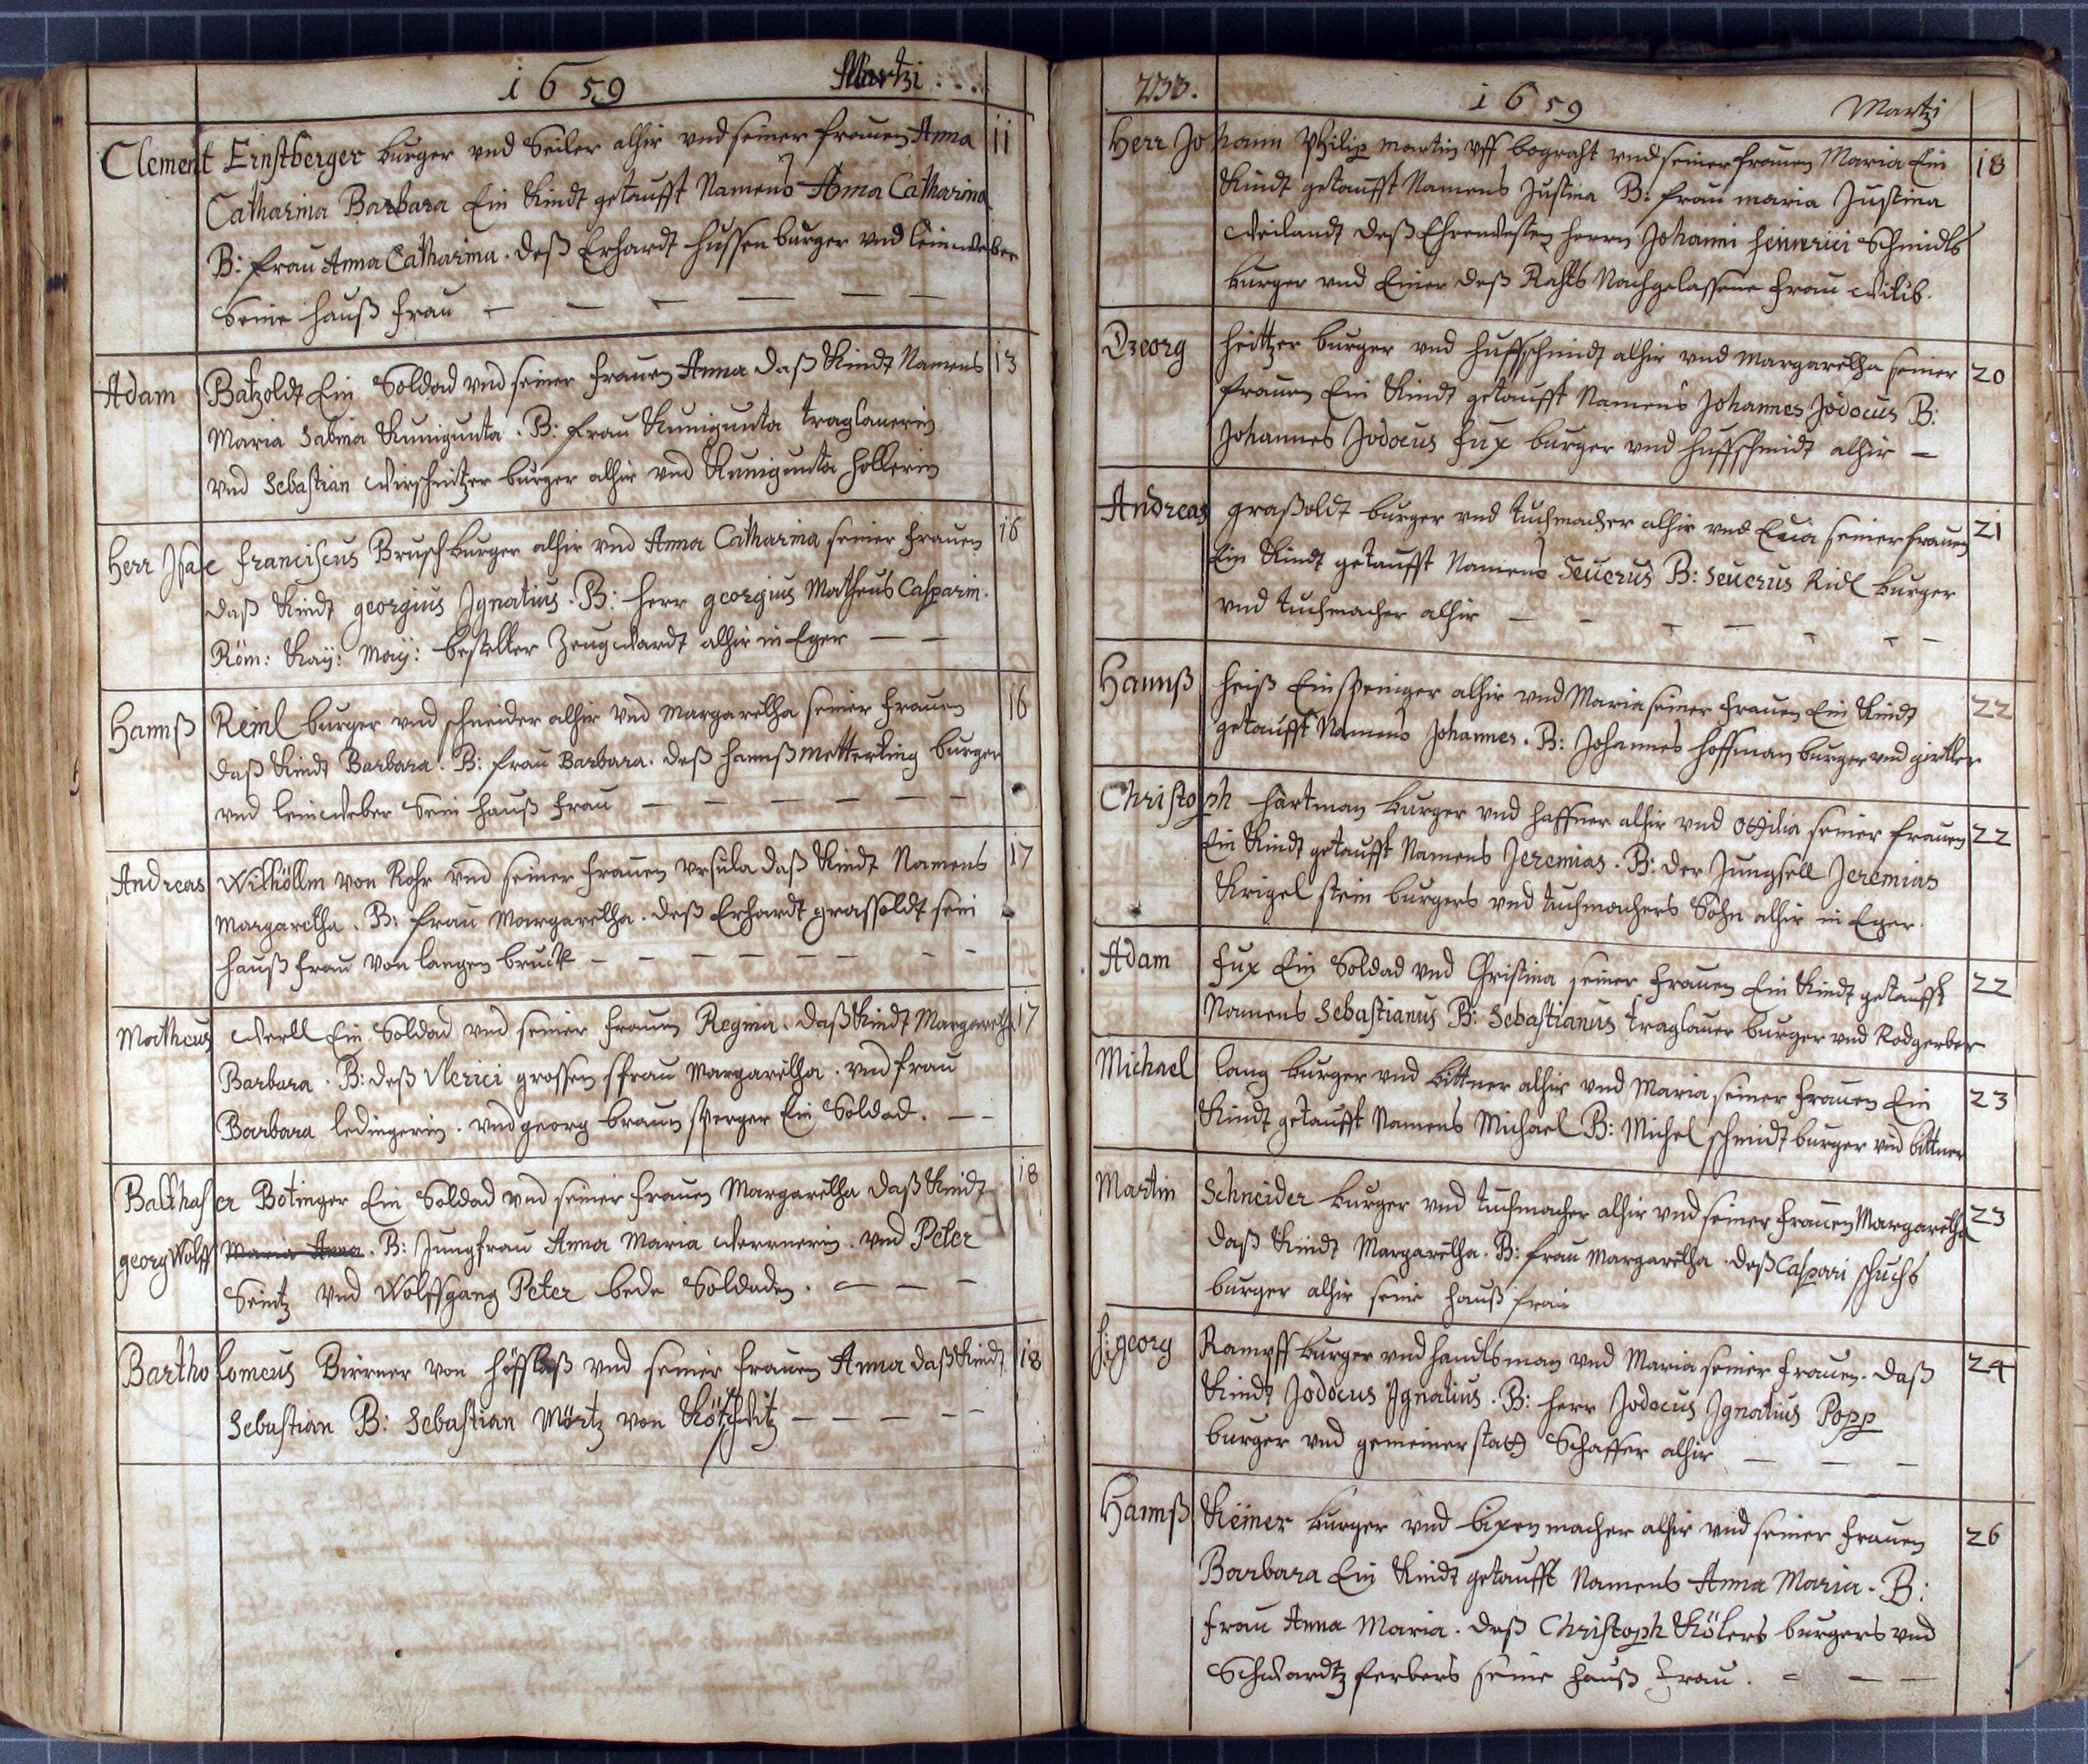 1659 Martzi
Clement Ernstberger burger vnd Seiler alhir vnd seiner frauen Anna 11
Catharina Barbara Ein Kindt getaufft Namens Anna Catharina
B: frau Anna Catharina. deß Erhardt hussen burger vnd leinweber
Seine hauß frau
Adam Batzoldt Ein Soldad vnd seiner frauen Anna daß Kindt Namens 13
Maria Sabina Kunigunta. B: frau Kunigunta traglauerin
vnd Sebastian Wirschnitzer burger alhir vnd Kunigunta hollerin
Herr Isac franciscus Brusch burger alhir vnd Anna Catharina seiner frauen 16
daß Kindt georgius Ignatius. B: herr georgius Matheus Casparin.
Röm: Kaÿ: Maÿ: bestelter Zeugwardt alhir in Eger
Hannß Reinl burger vnd schneider alhir vnd Margaretha seiner frauen 16
daß Kindt Barbara. B: frau Barbara. deß hannß Metterling burger
vnd leinweber Sein hauß frau
Andreas Wilhöllm von Rohr vnd seiner frauen Vrsula daß Kindt Namens 17
Margaretha. B: frau Margaretha. deß Erhardt grassoldt sein
hauß frau von langen bruck
Matheus Werll Ein Soldad vnd seiner frauen Regina. daß Kindt Margaretha 17
Barbara. B: deß Vlerici grossen frau Margaretha. vnd frau
Barbara ledingerin. vnd georg braun sperger Ein Soldad.
Balthaser Botinger Ein Soldad vnd seiner frauen Margaretha daß Kindt 18
georg Wolff Maria Anna. B: Jungfrau Anna Maria Werrnerin. vnd Peter
Seintz vnd Wolffgang Peter bede Soldaden.
Bartholomeus Birrner von höfflaß vnd seiner frauen Anna daß Kindt 18
Sebastian B: Sebastian Mörtz von Kötschwitz
233. 1659 Martzi
Herr Johann Philip martin vff bograht vnd seiner frauen Maria Ein 18
Kindt getaufft Namens Justina B: frau maria Justina
Weilandt deß Ehrenvesten herrn Johanni heinnrici Schmidts
burger vnd Einer deß Rahts Nachgelassene frau Witib.
Georg heitzer burger vnd huffschmidt alhir vnd Margaretha seiner 20
frauen Ein Kindt getaufft Namens Johannes Jodocus B:
Johannes Jodocus fux burger vnd huffschmidt alhir
Andreas graßoldt burger vnd tuchmacher alhir vnd Euia seiner frauen 21
Ein Kindt getaufft Namens Seuerus B: Seuerus Ridl burger
vnd tuchmacher alhir
Hannß heiß Einspeniger alhir vnd Maria seiner frauen Ein Kindt 22
getaufft Namens Johannes. B: Johannes hoffman burger vnd girtler
Christoph hartman burger vnd haffner alhir vnd Ottilia seiner frauen 22
Ein Kindt getaufft Namens Jeremias. B: der Jungsell Jeremias
Krigel stein burgers vnd tuchmachers Sohn alhir in Eger.
Adam fux Ein Soldad vnd Christina seiner frauen Ein Kindt getaufft 22
Namens Sebastianus B: Sebastianus traglauer burger vnd Rodgerber
Michael lang burger vnd bittner alhir vnd Maria seiner frauen Ein 23
Kindt getaufft Namens Michael B: Michel schmidt burger vnd bittner
Martin Schneider burger vnd tuchmacher alhir vnd seiner frauen Margaretha 23
daß Kindt Margaretha. B: frau Margaretha. deß Caspari schuchs
burger alhir seine hauß frau
h: georg Rampff burger vnd handtsman vnd Maria seiner frauen. daß 24
Kindt Jodocus Ignatius. B: herr Jodocus Ignatius Popp
burger vnd gemeiner statt Schaffer alhir
Hannß Keiner burger vnd bixen macher alhir vnd seiner frauen 26
Barbara Ein Kindt getaufft Namens Anna Maria. B:
frau Anna Maria. deß Christoph Kölers burgers vnd
Schwardtz ferbers seine hauß frau.